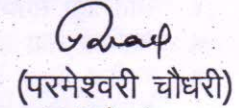 (परमेश्वरी चौधरी)